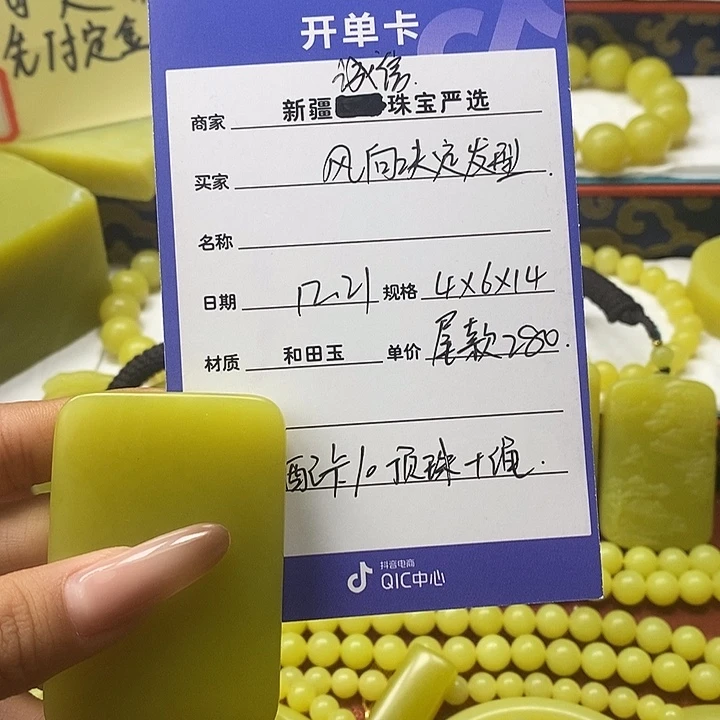 先付定金
开单卡
诚信.
商家 新疆 珠宝严选
买家 风向决定发型.
名称
日期 12.21 规格 4×6×14
材质 和田玉 单价 尾款280.
配卡10顶珠+绳.
抖音电商
QIC中心